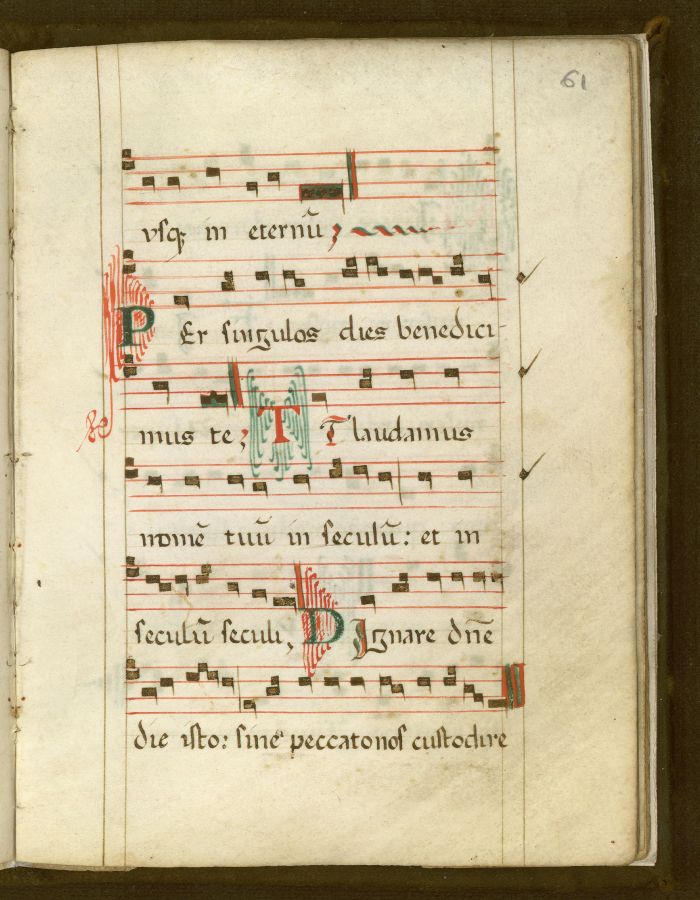 61
vsqȝ in eternū
PEr singulos dies benedici-
mus te; T Tlaudamus
nomē tuū in seculū: et in
seculū seculi, DIgnare dn̄e
die isto: sine peccato nos custodire